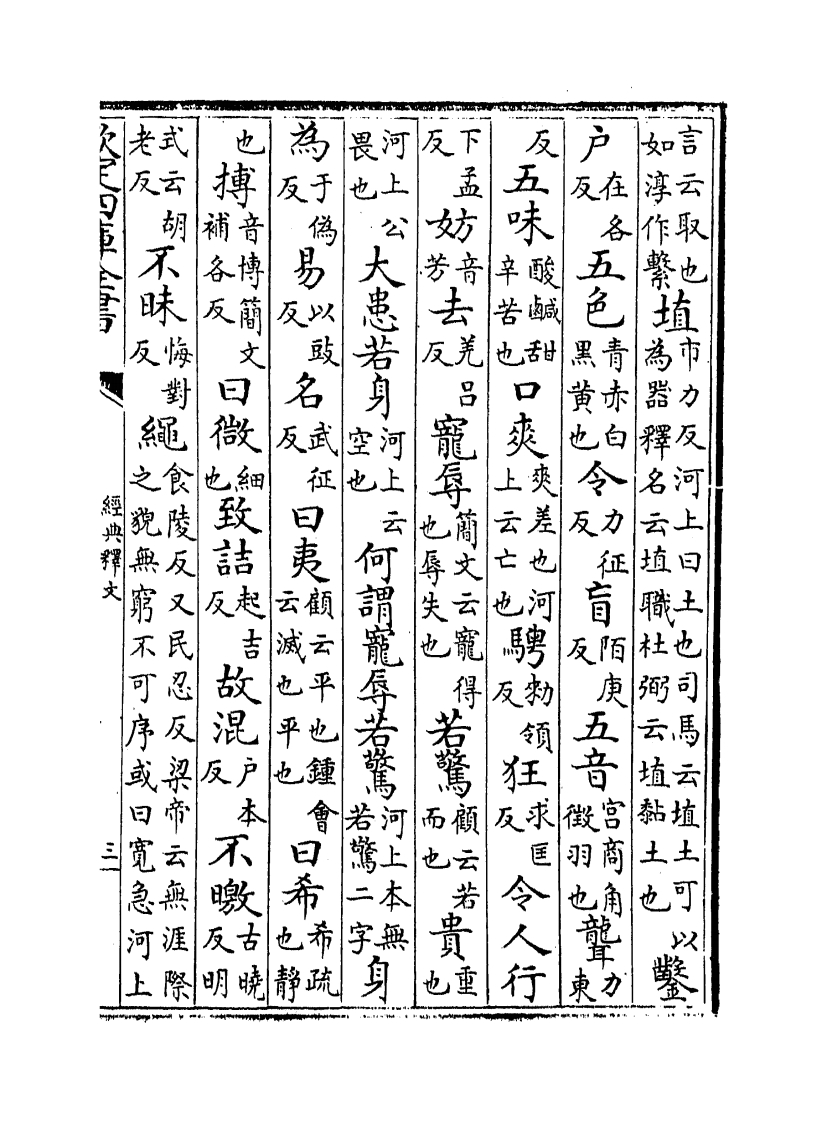 言云取也如淳作繫埴市力反河上曰土也司馬云埴土可以為器釋名云埴職杜弼云埴黏土也鑿
在各反户五色青赤白黑黄也令力征反盲陌庚反五音宫商角徵羽也聾力東
反五味酸鹹甜辛苦也口爽爽差也河上云亡也騁勑領反狂求匡反令人行
下孟反妨音芳去羌吕反寵辱簡文云寵得也辱失也若驚顧云若而也貴重也
河上公畏也大患若身河上云空也何謂寵辱若驚河上本無若驚二字身
為于偽反易以豉反名武征反曰夷顧云平也鍾會云滅也平也曰希希疏也靜
也搏音博簡文補各反曰微細也致詰起吉反故混户本反不曒古曉反明
式云胡老反不昧悔對反繩食陵反又民忍反梁帝云無涯際之貌無窮不可序或曰寛急河上
欽定四庫全書
經典釋文
三